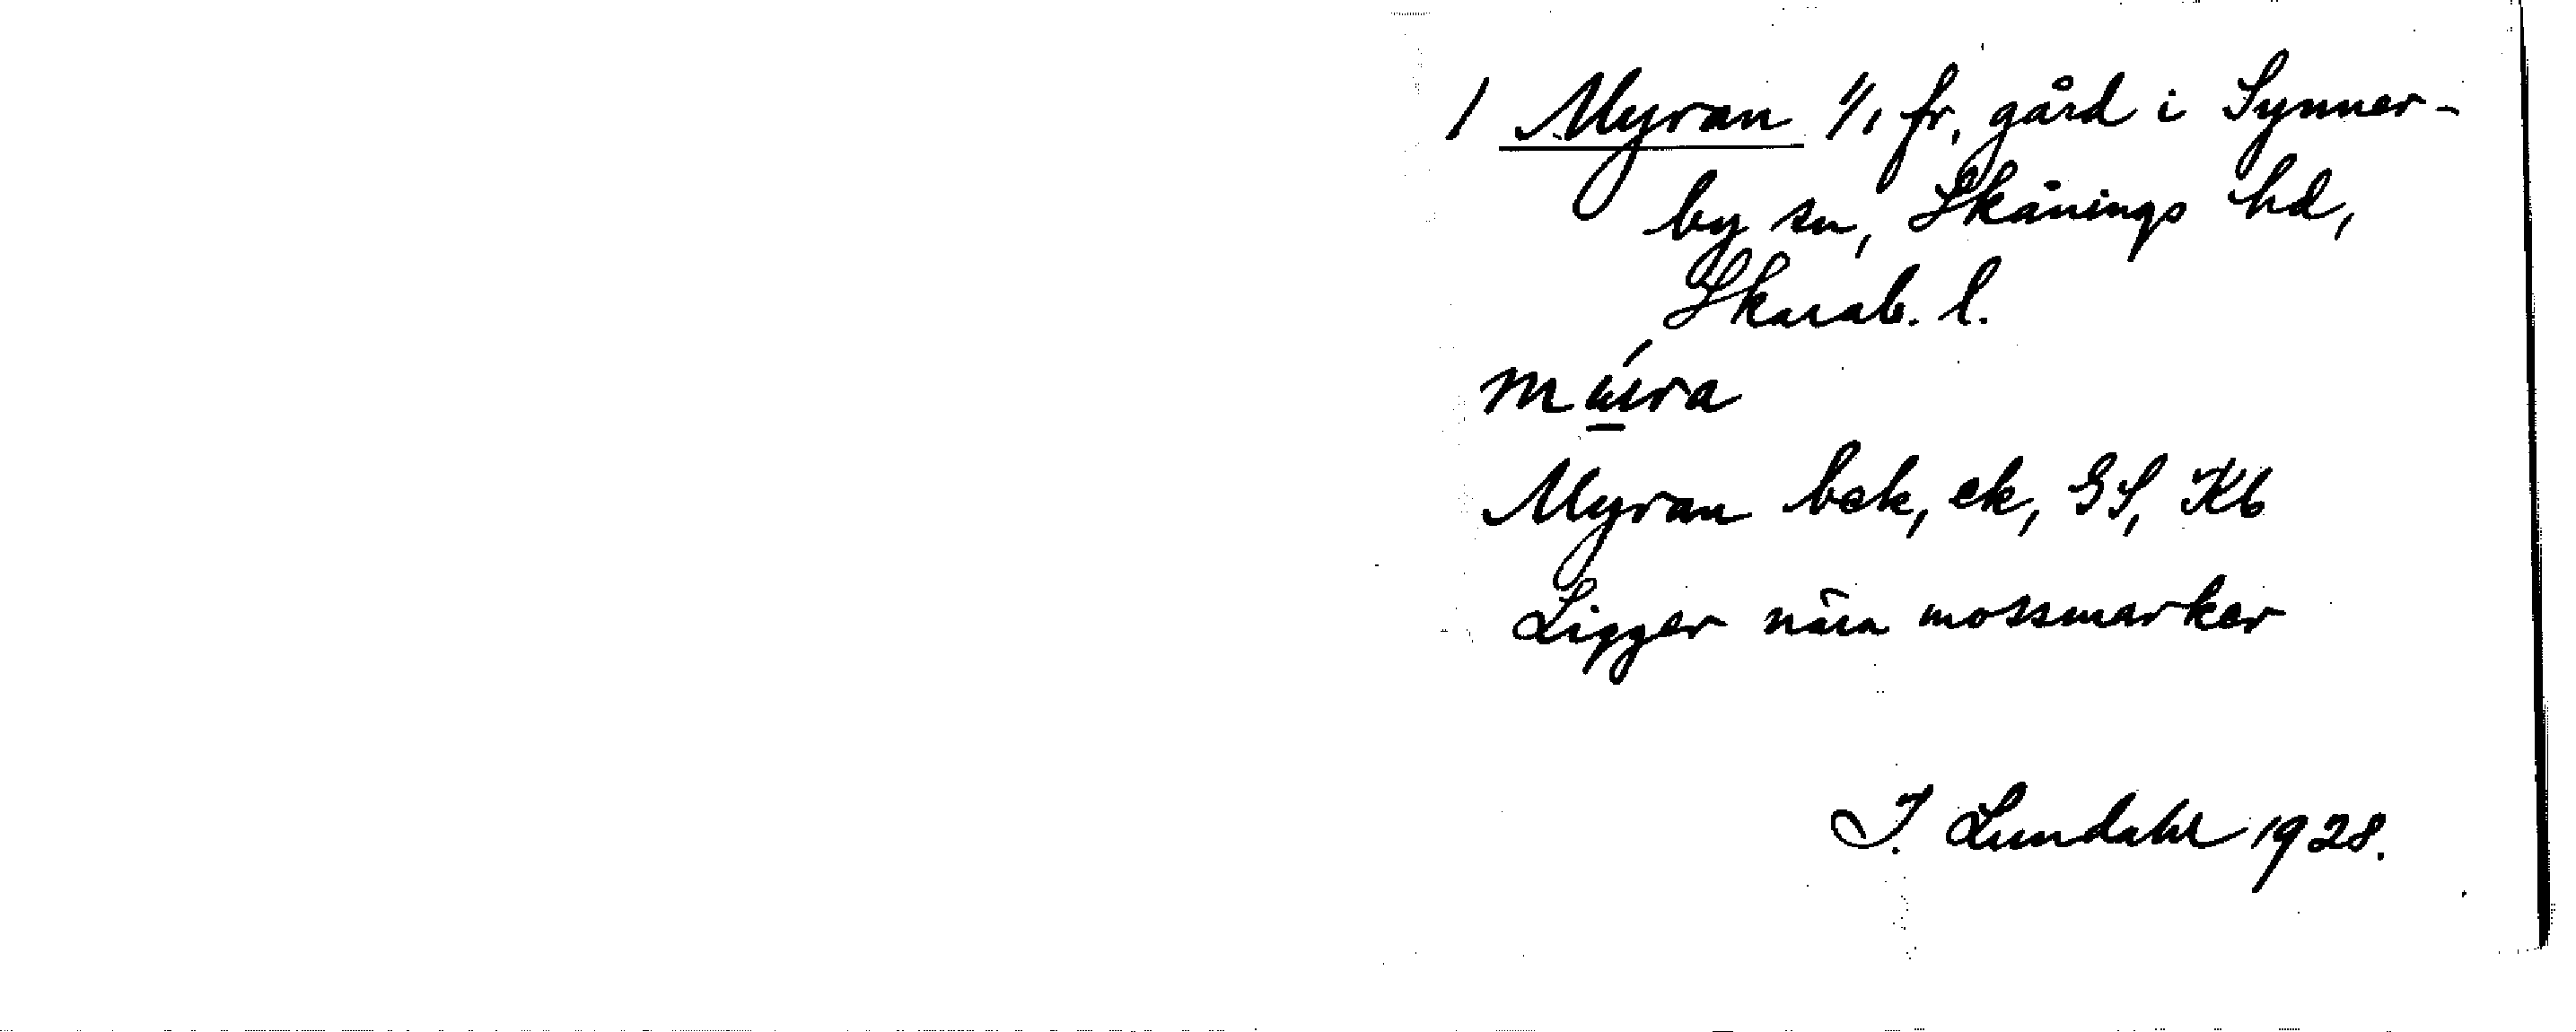 / Myran 1/1 fr, gård i Synner-
by sn, Skånings hd,
Skarab. l.
múra
Myran bek, ek, GS, Kb
Ligger nära mossmarker
I. Lundahl 1928.